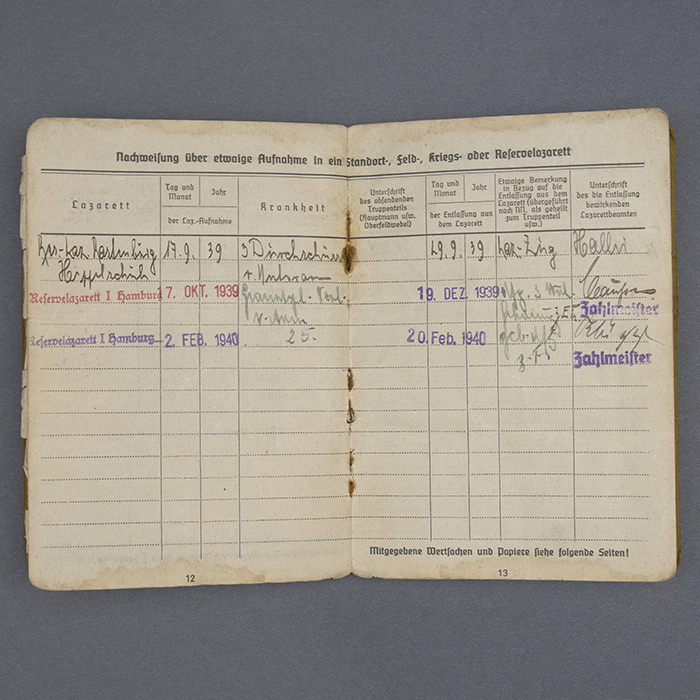 Nachweisung über etwaige Aufnahme in ein Standort-, Feld-, Kriegs- oder Reservelazarett
Lazarett
Tag und Monat
Jahr
der Laz.-Aufnahme
Krankheit
Unterschrift
des absendenden
Truppenteils
(Hauptmann usw.
Oberfeldwebel)
Tag und
Monat
Jahr
der Entlassung aus
dem Lazarett
Etwaige Bemerkung
in Bezug auf die
Entlassung aus dem
Lazarett (übergeführt
nach NN, als geheilt
zum Truppenteil
usw.)
Unterschrift
des die Entlassung
bewirkenden
Lazarettbeamten
17.9. 39 3 Durchschüsse 29.9. 39 Laz-Zug
v. Unterarm
Reservelazarett I Hamburg 17. OKT. 1939 19. DEZ. 1939
Zahlmeister
Reservelazarett I Hamburg 2. FEB. 1940 25. 20. Feb. 1940
Zahlmeister
Mitgegebene Wertsachen und Papiere siehe folgende Seiten!
12
13